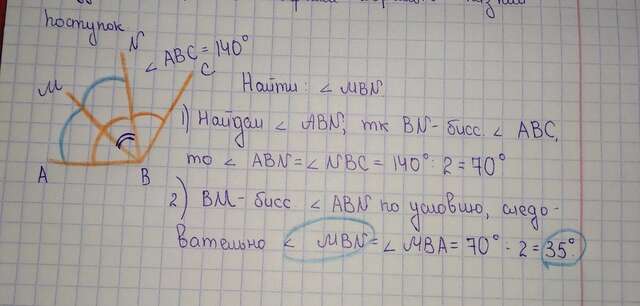 поступок.
∠ ABC = 140°
N
C
M
A
B
Найти: ∠ MBN
1) Найдем ∠ ABN, тк BN - бисс. ∠ ABC,
то ∠ ABN = ∠ NBC = 140° : 2 = 70°
2) BM - бисс ∠ ABN по условию, следо-
вательно ∠ MBN = ∠ MBA = 70° : 2 = 35°.